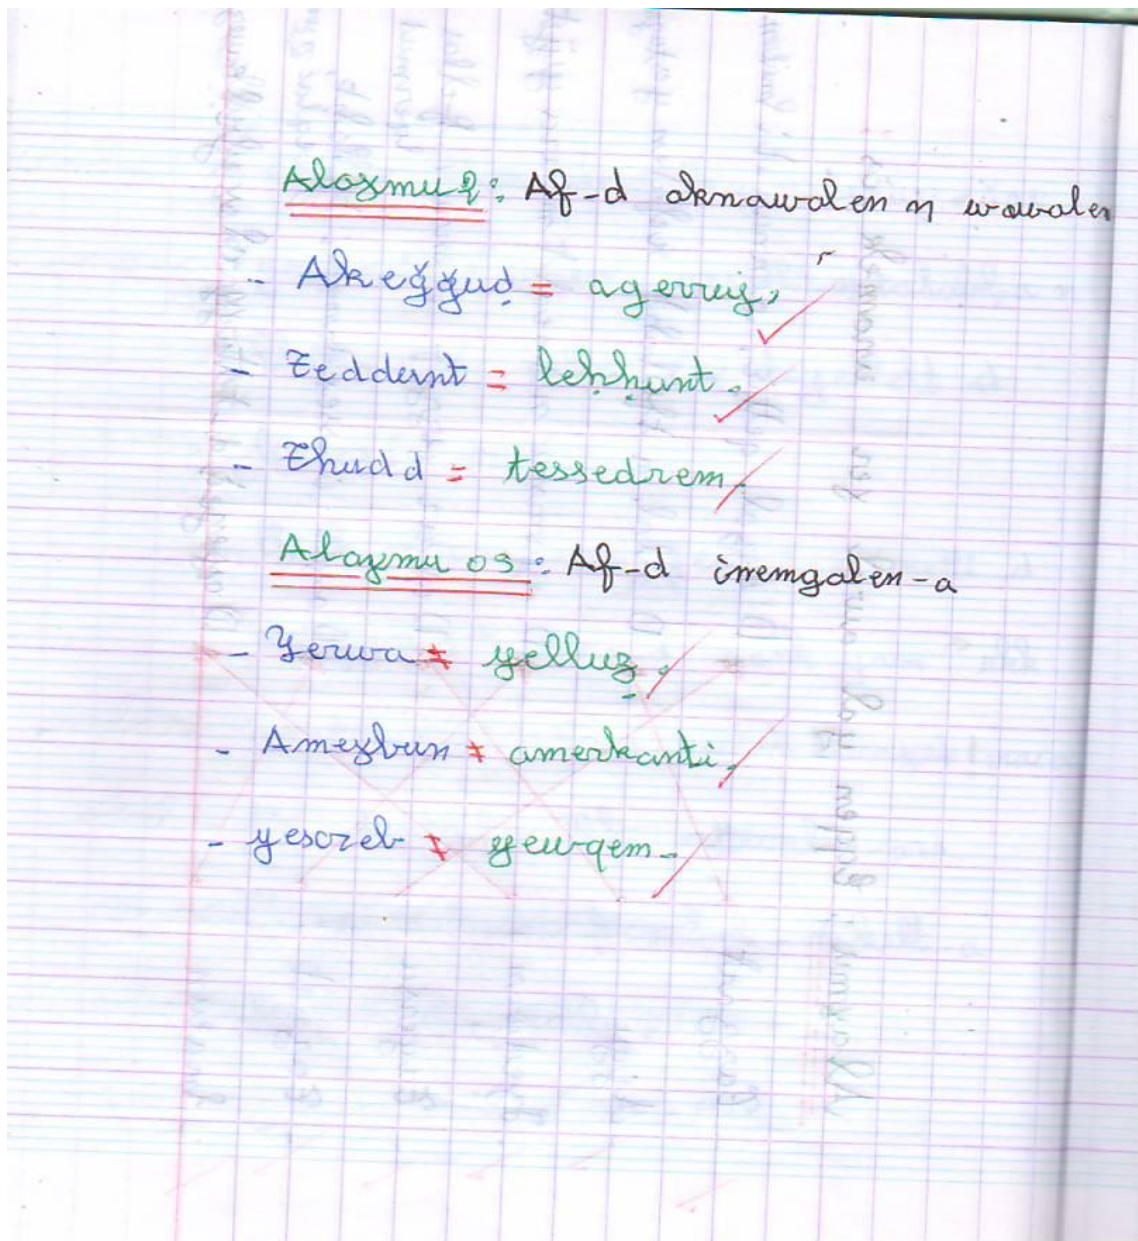 Alaɣmu 2: Af-d aknawalen n wawalen
- Akeǧǧuḍ = agerruj.
- Zeddernt = leḥḥunt.
- Thudd = tessedrem.
Alaɣmu 03: Af-d inemgalen-a
- Yerwa ≠ yelluẓ.
- Ameɣbun ≠ amerkanti.
- yesɛreb ≠ yewqem.